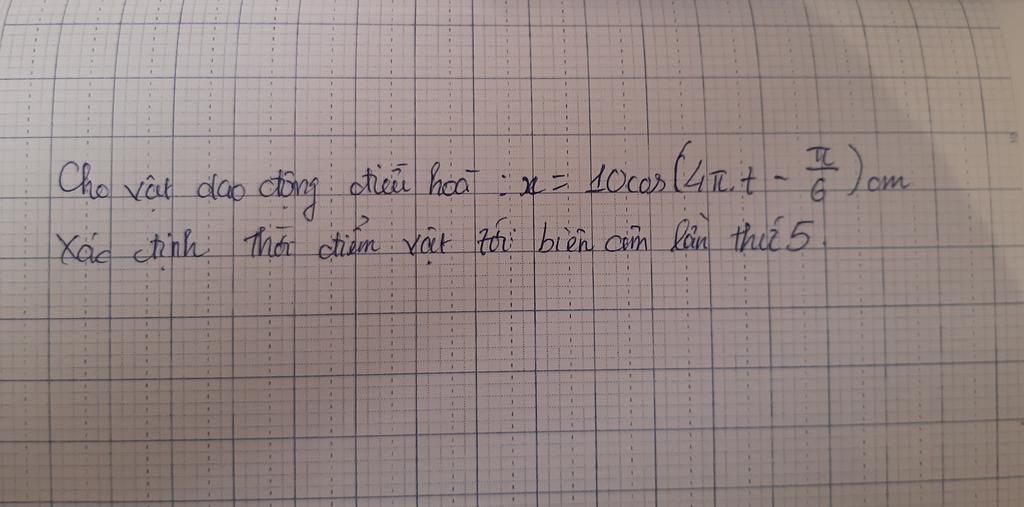 Cho vật dao động điều hoà : x = 10cos(4π.t - π/6)cm
Xác định thời điểm vật tới biên âm lần thứ 5.